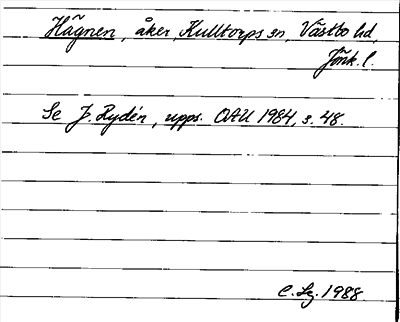 Hägnen, åker, Kulltorps sn, Västbo hd,
Jönk. l.
Se J. Rydén, upps. OAU 1984, s. 48.
C. Lg. 1988